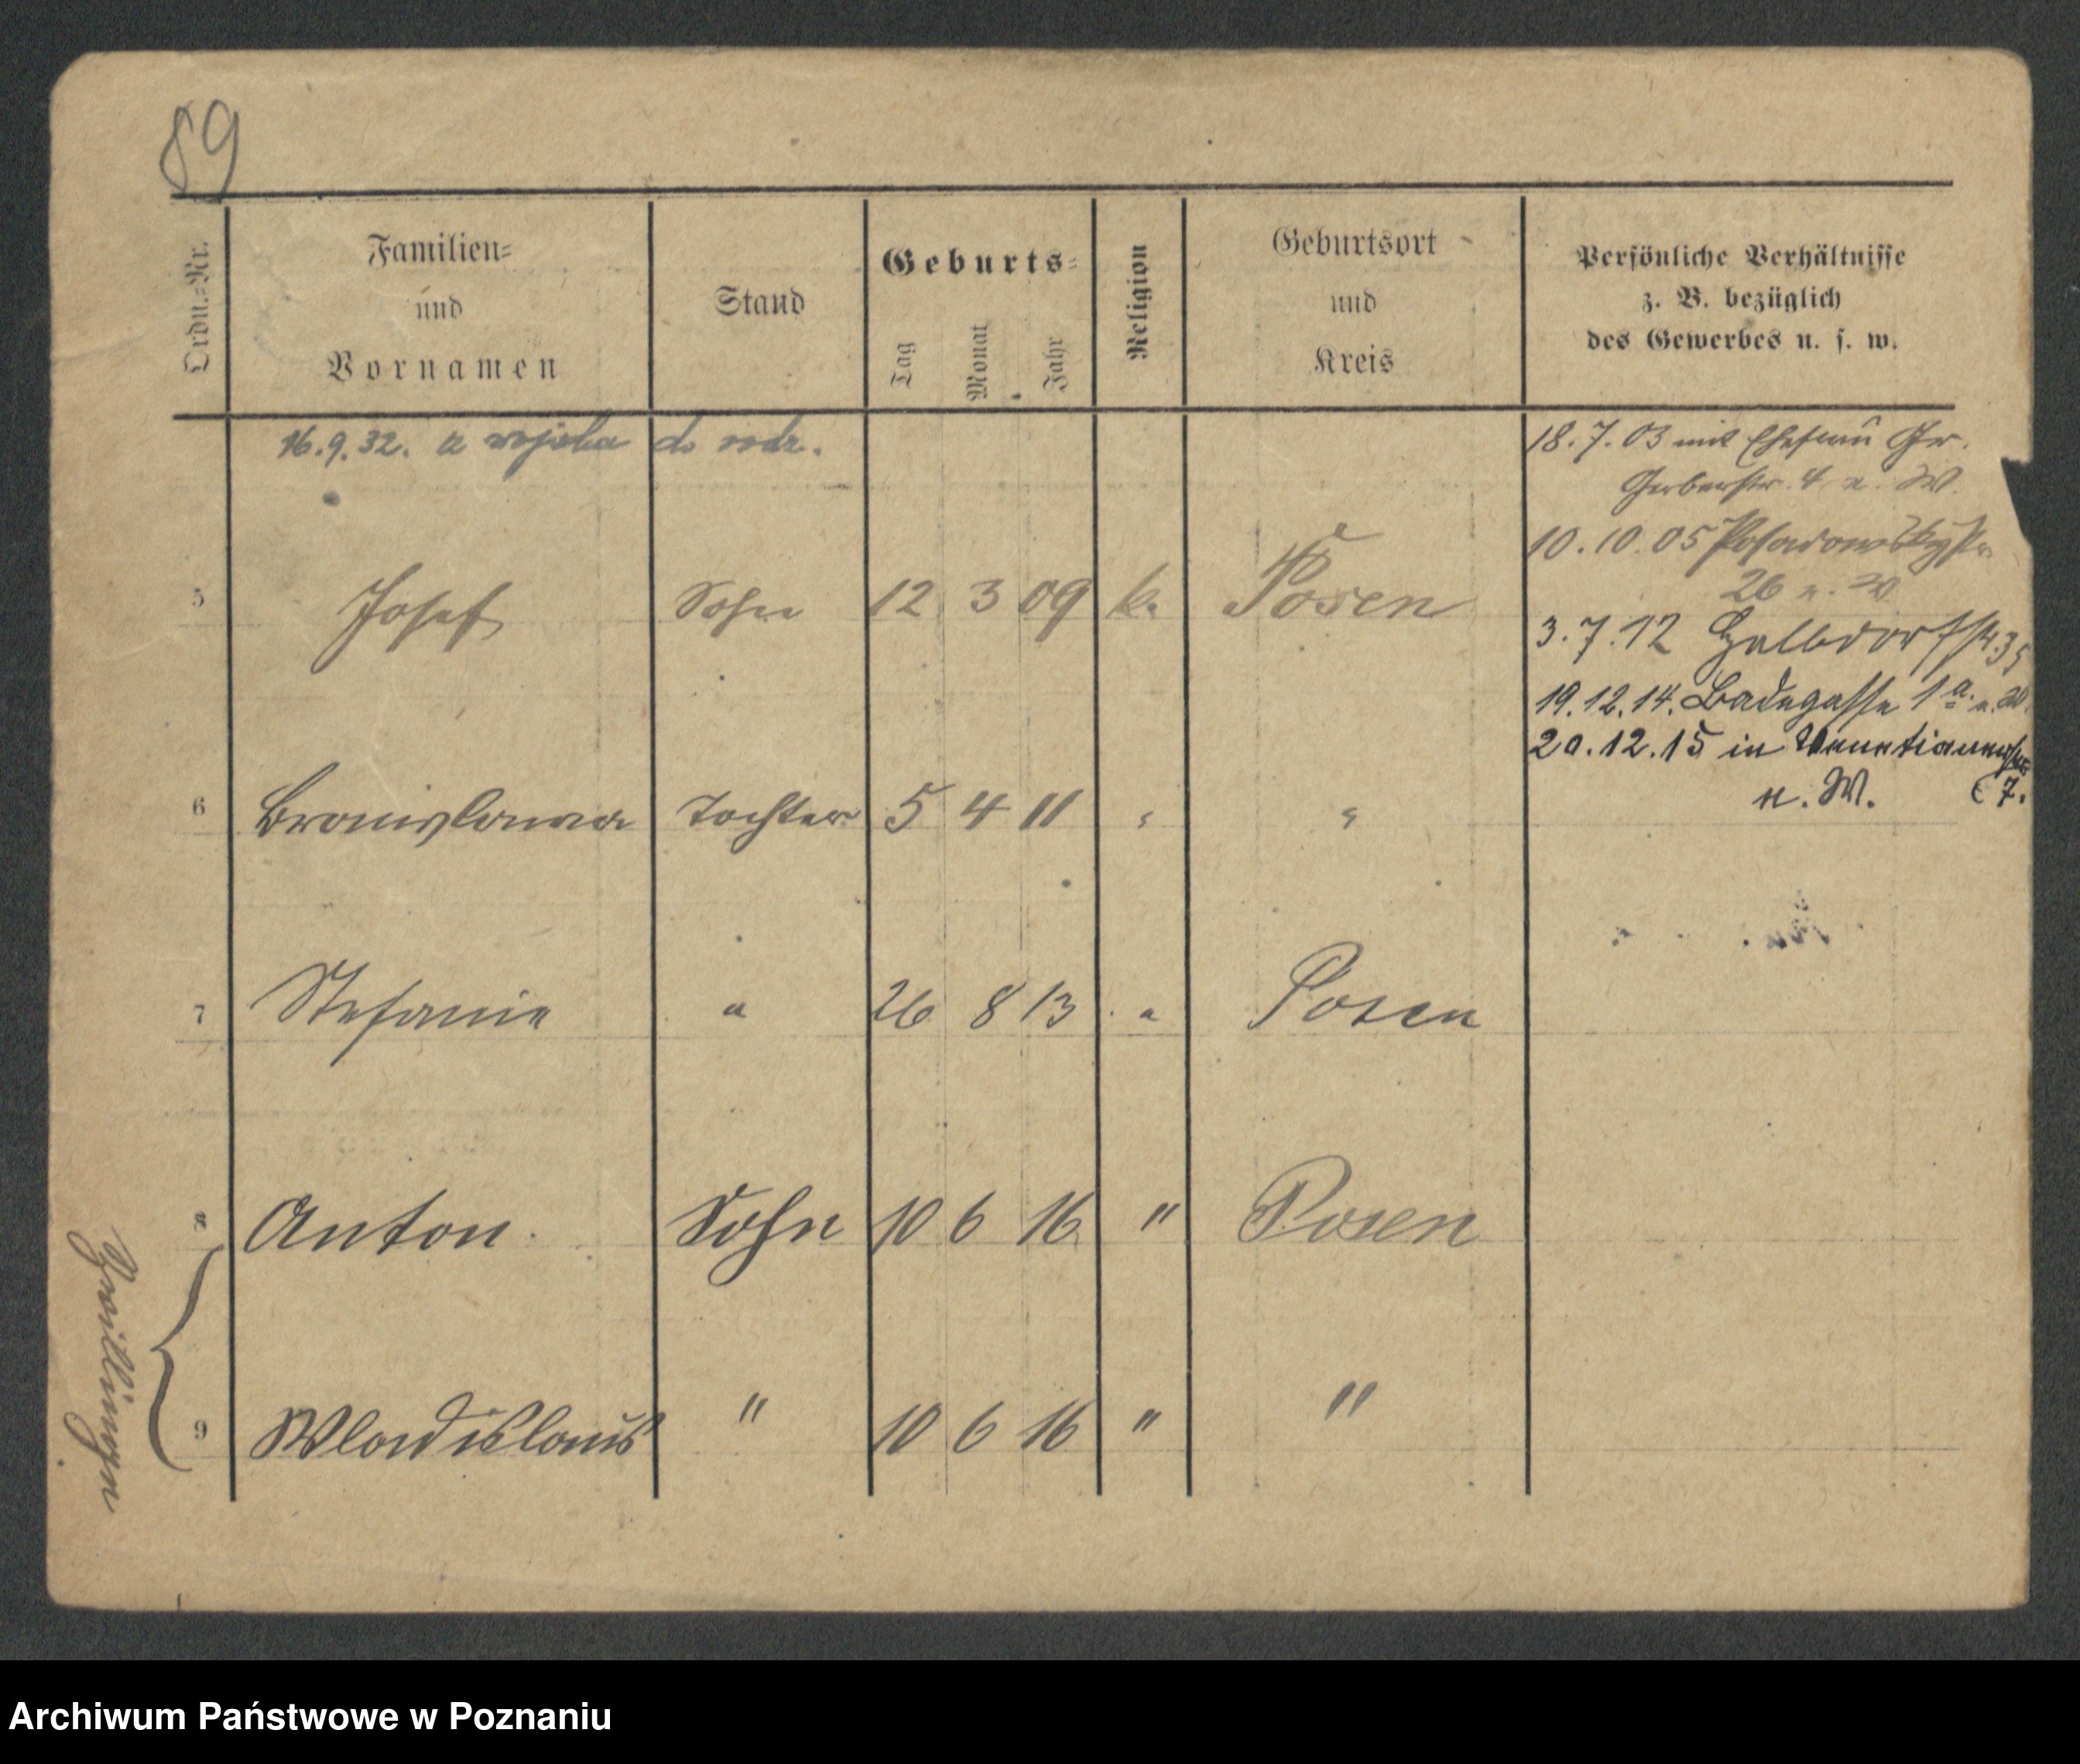 89
Ordn.-Nr.
Familien-
und
Vornamen
Stand
Geburts-
Tag
Monat
Jahr
Religion
Geburtsort
und
Kreis
Persönliche Verhältnisse
z. B. bezüglich
des Gewerbes u. s. w.
16.9.32. z wojska do rodz.
18.7.03 mit Ehefrau Gr.
Gerberstr. 4 n. W.
10.10.05 Posadowskystr.
26 n. W
5 Josef Sohn 12 3 09 k. Posen
3.7.12 Halbdorfstr. 35
19.12.14. Badegasse 1a. n. W.
20.12.15 in Venetianerstr.
n. W. 7.
6 Bronislawa Tochter 5 4 11 " "
7 Stefanie " 26 8 13 " Posen
8 Anton Sohn 10 6 16 " Posen
9 Wladislaus " 10 6 16 " "
Zwillingen
Archiwum Państwowe w Poznaniu